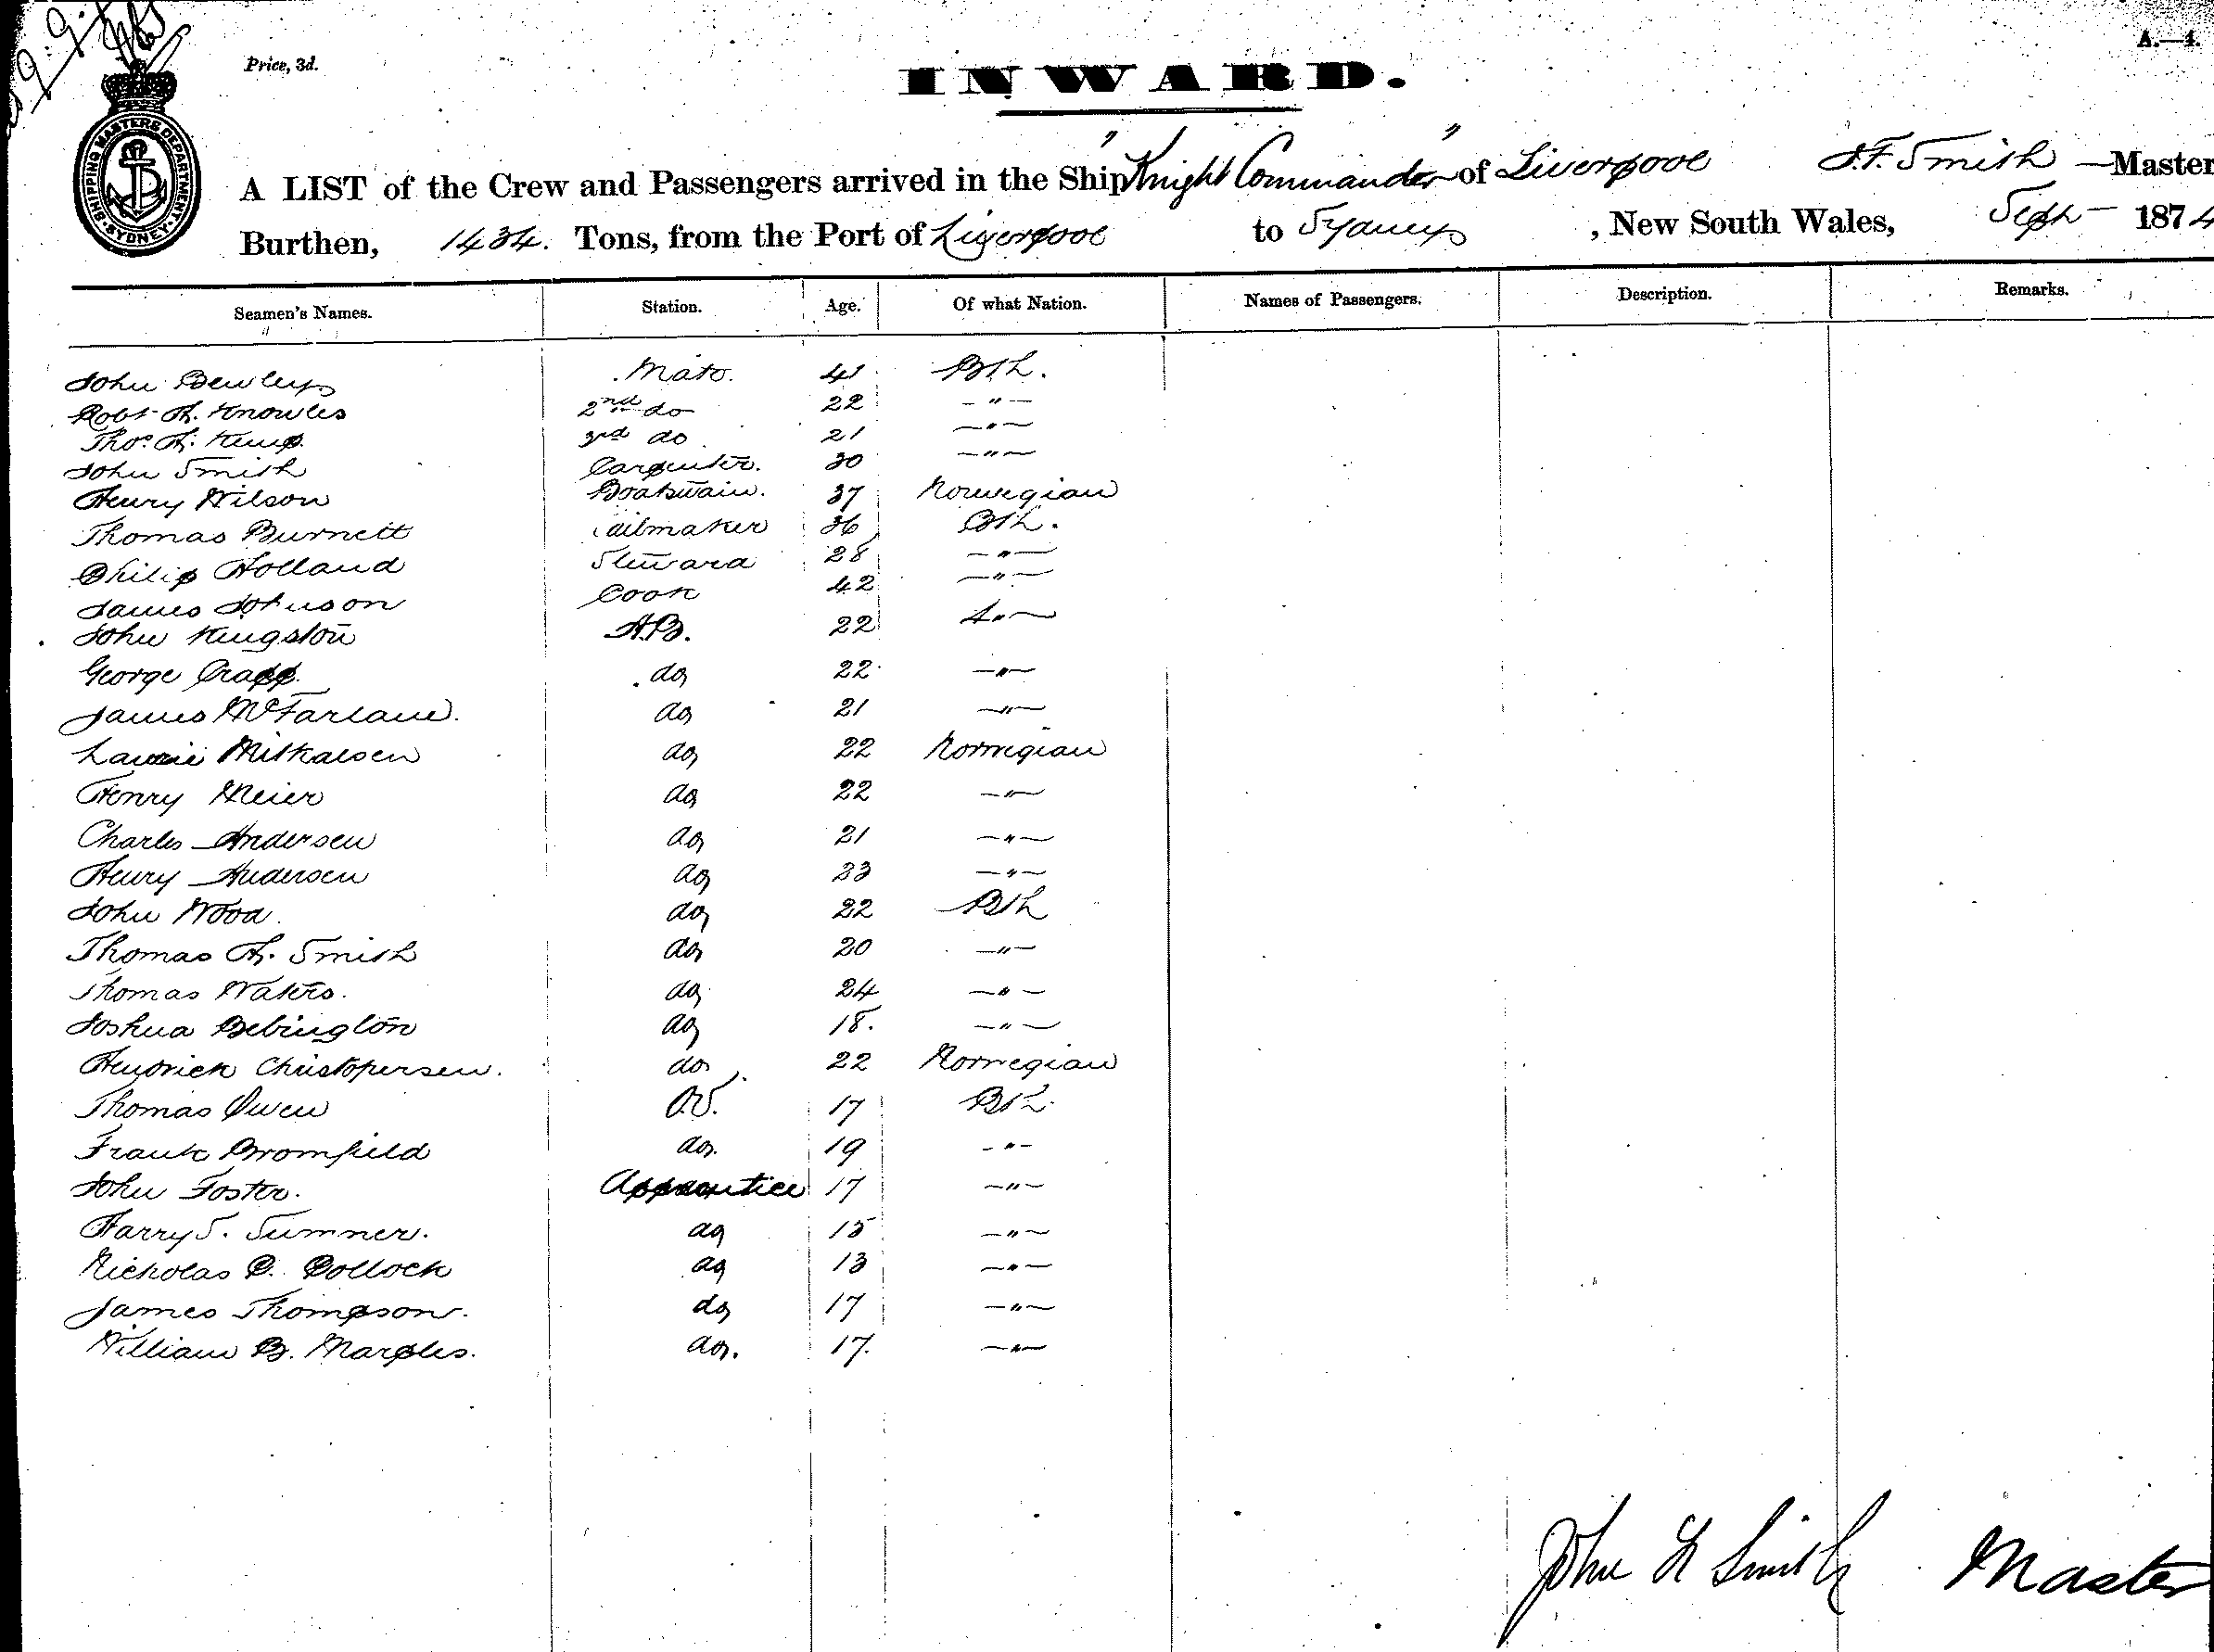 Price, 3d.
A.—4.
INWARD.
SHIPPING MASTERS DEPARTMENT · SYDNEY ·
A LIST of the Crew and Passengers arrived in the Ship "Knight Commander" of Liverpool J.F. Smith — Master
Burthen, 1434. Tons, from the Port of Liverpool to Sydney, New South Wales, Sept — 1874
Seamen's Names. Station. Age. Of what Nation. Names of Passengers. Description. Remarks.
John Bewley Mate. 41 Bsh.
Robt H. Knowles 2nd do 22 — " —
Thos. H. Kemp. 3rd do 21 — " —
John Smith Carpenter. 30 — " —
Henry Wilson Boatswain. 37 Norwegian
Thomas Burnett Sailmaker 36 Bsh.
Philip Holland Steward 28 — " —
James Johnson Cook 42 — " —
John Kingston A.B. 22 " —
George Crapp. do 22 — " —
James McFarlane. do 21 — " —
Mikaelsen do 22 Norwegian
Henry Meier do 22 — " —
Charles Andersen do 21 — " —
Henry Andersen do 23 — " —
John Wood. do 22 Bsh
Thomas H. Smith do 20 — " —
Thomas Waters. do 24 — " —
Joshua Bebington do 18. — " —
Hendrick Christopersen. do 22 Norwegian
Thomas Owen O.S. 17 Bsh.
Frank Bromfield do. 19 - " -
John Foster. Apprentice 17 — " —
Harry S. Sumner. do 15 — " —
Nicholas P. Pollock do 13 — " —
James Thompson. do 17 — " —
William B. Marples. do. 17. — " —
John F Smith Master